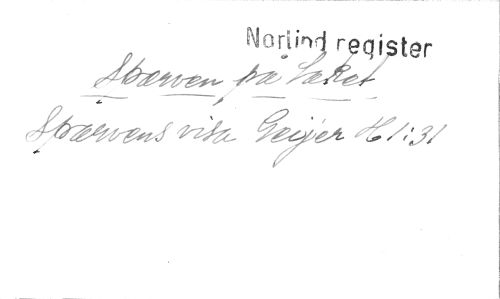 Norlind register
Sparven på taket
Sparvens visa Geijer H 1:31